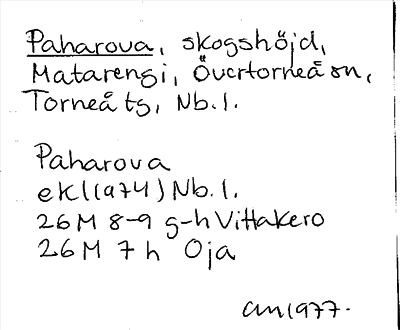 Paharova, skogshöjd,
Matarengi, Övertorneå sn,
Torneå tg, Nb.l.
Paharova
ekl(1974) Nb.l.
26M 8-9 g-h Vittakero
26M 7h Oja
am1977.